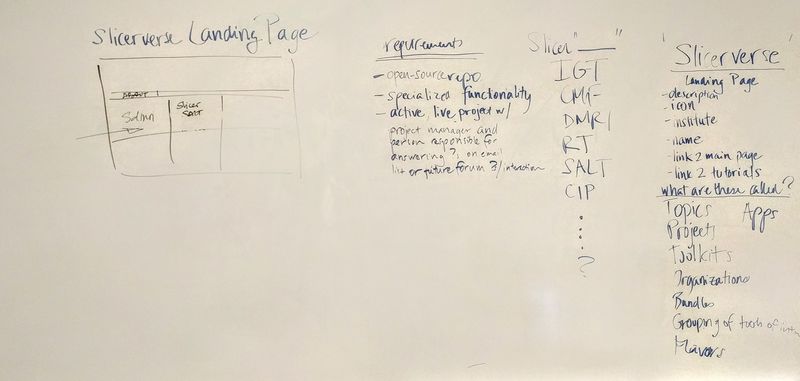 Slicerverse Landing Page
Slicer
SALT
requirements
- open-source repo
- specialized functionality
- active, live project w/
project manager and
person responsible for
answering ?s on email
list or future forum ?/interaction
Slicer "___"
IGT
CMF
DMRI
RT
SALT
CIP
?
Slicerverse
Landing Page
- description
- icon
- institute
- name
- link 2 main page
- link 2 tutorials
what are these called?
Topics Apps
Projects
Toolkits
Organizations
Bundles
Grouping of tools of
Flavors